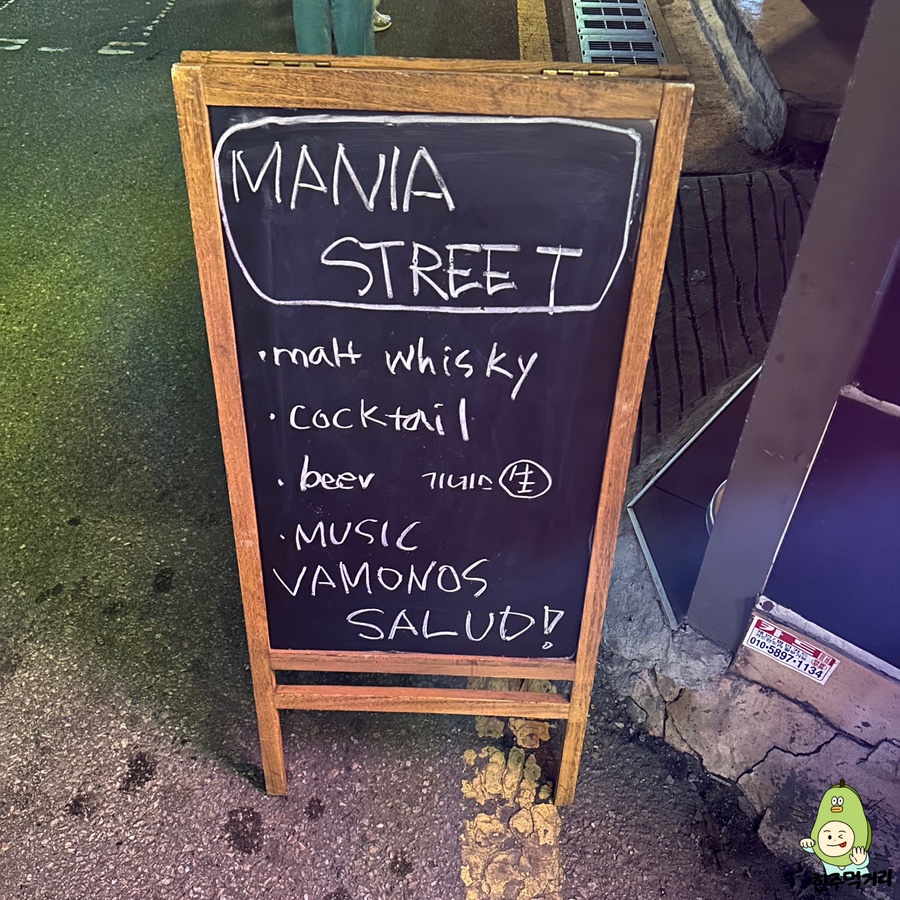 MANIA
STREET
·malt whisky
·cocktail
·beer 기네스 生
·MUSIC
VAMONOS
SALUD!
카드
010-5897-1134